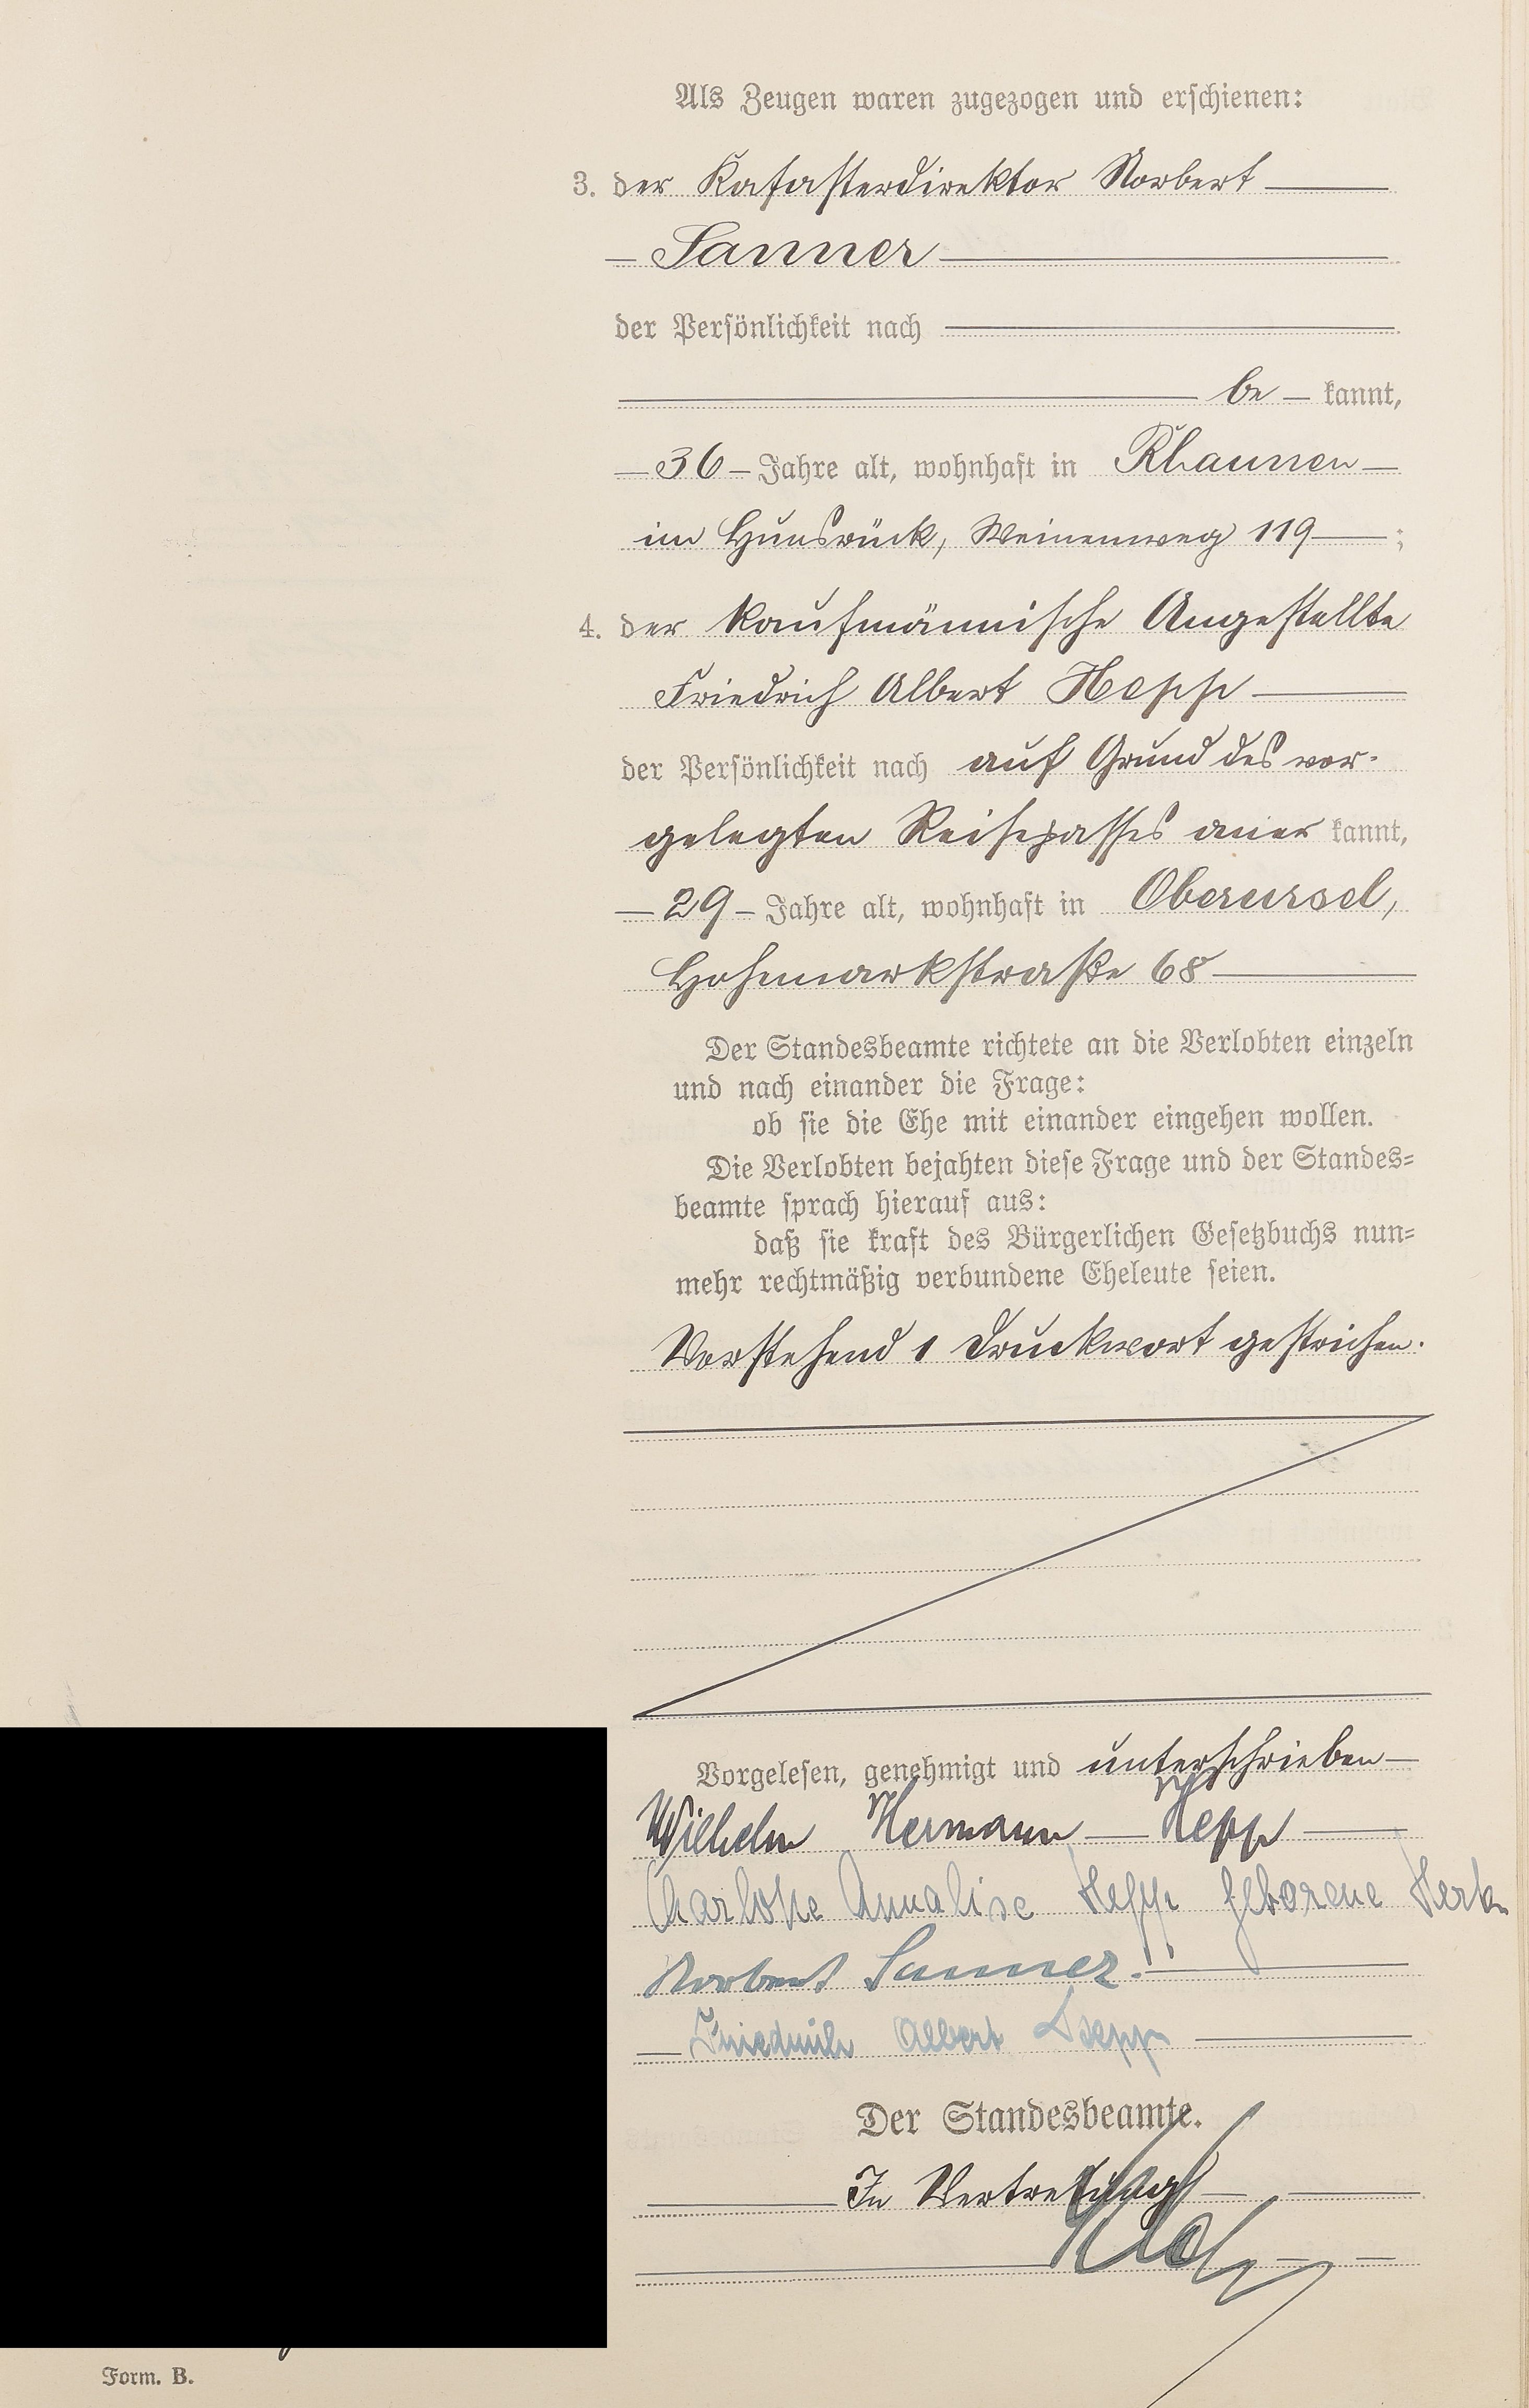 Als Zeugen waren zugezogen und erschienen:
3. der Katasterdirektor Norbert
Sanner
der Persönlichkeit nach
be kannt,
36 Jahre alt, wohnhaft in Rhaunen
im Hunsrück, Weinenweg 119 ;
4. der kaufmännische Angestellte
Friedrich Albert Hepp
der Persönlichkeit nach auf Grund des vor-
gelegten Reisepasses aner kannt,
29 Jahre alt, wohnhaft in Oberursel,
Hohemarkstraße 68
Der Standesbeamte richtete an die Verlobten einzeln
und nach einander die Frage:
ob sie die Ehe mit einander eingehen wollen.
Die Verlobten bejahten diese Frage und der Standes-
beamte sprach hierauf aus:
daß sie kraft des Bürgerlichen Gesetzbuchs nun-
mehr rechtmäßig verbundene Eheleute seien.
Vorstehend 1 Druckwort gestrichen.
Vorgelesen, genehmigt und unterschrieben
Wilhelm Hermann Hepp
Charlotte Annalise Hepp geborene
Norbert Sanner
Friedrich Albert Hepp
Der Standesbeamte.
In Vertretung
Form. B.